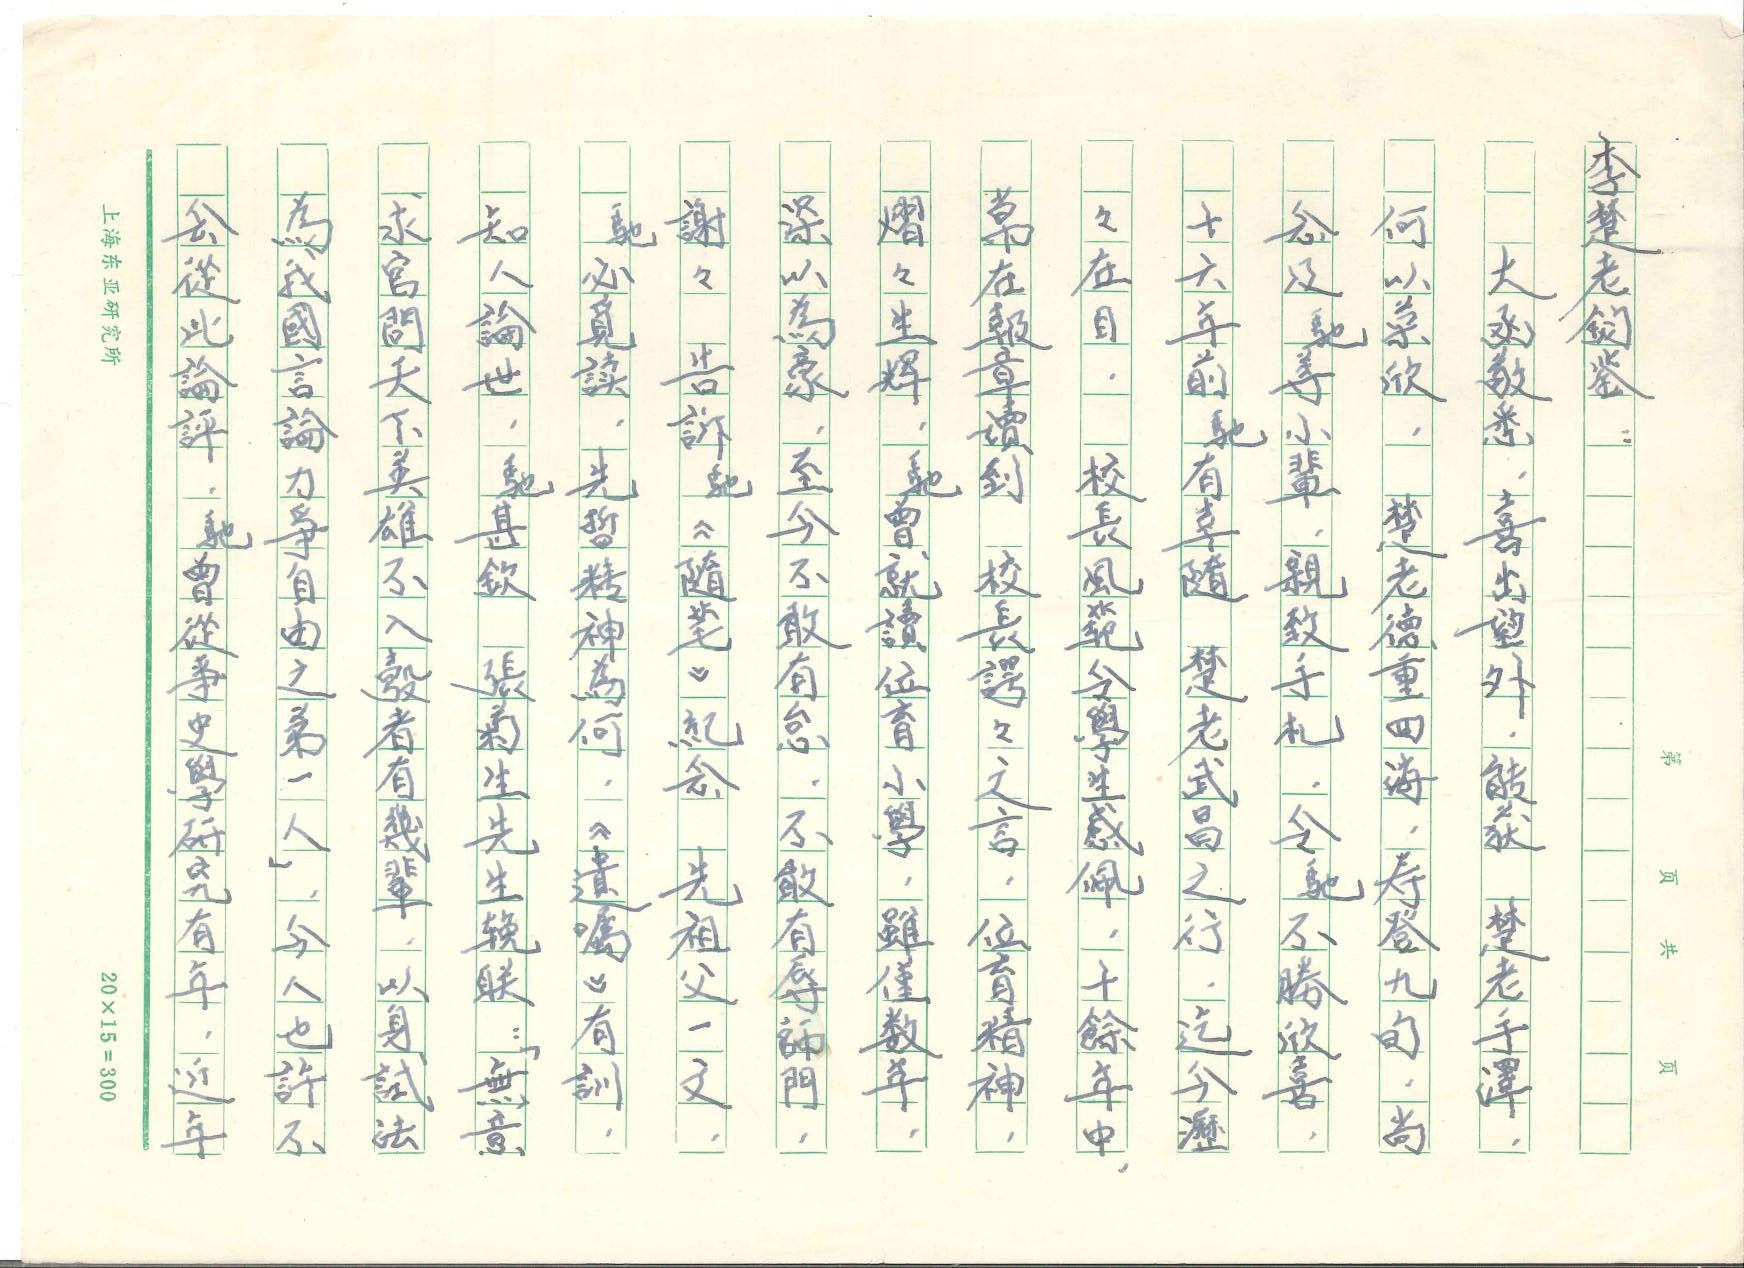 李楚老鈞鑒：
大函敬悉，喜出望外，能获 楚老手澤，
何以荣欣， 楚老德重四海，寿登九旬，尚
念及馳等小輩，親致手札，令馳不勝欣喜，
十六年前馳有幸隨 楚老武昌之行，迄今瀝
々在目， 校長風範令學生感佩，十餘年中，
常在報章讀到 校長諤々之言，位育精神，
熠々生輝，馳曾就讀位育小學，雖僅数年，
深以為豪，至今不敢有怠，不敢有辱師門，
謝々 告訴馳《隨笔》紀念 先祖父一文，
馳必覓读，先哲精神為何，《遺囑》有訓，
知人論世，馳甚欽 張菊生先生輓联：「無意
求官問天下英雄不入彀者有幾輩，以身試法
為我國言論力爭自由之第一人」，今人也許不
会從此論評，馳曾從事史學研究有年，近年
上海东亚研究所
20×15=300
第 页 共 页